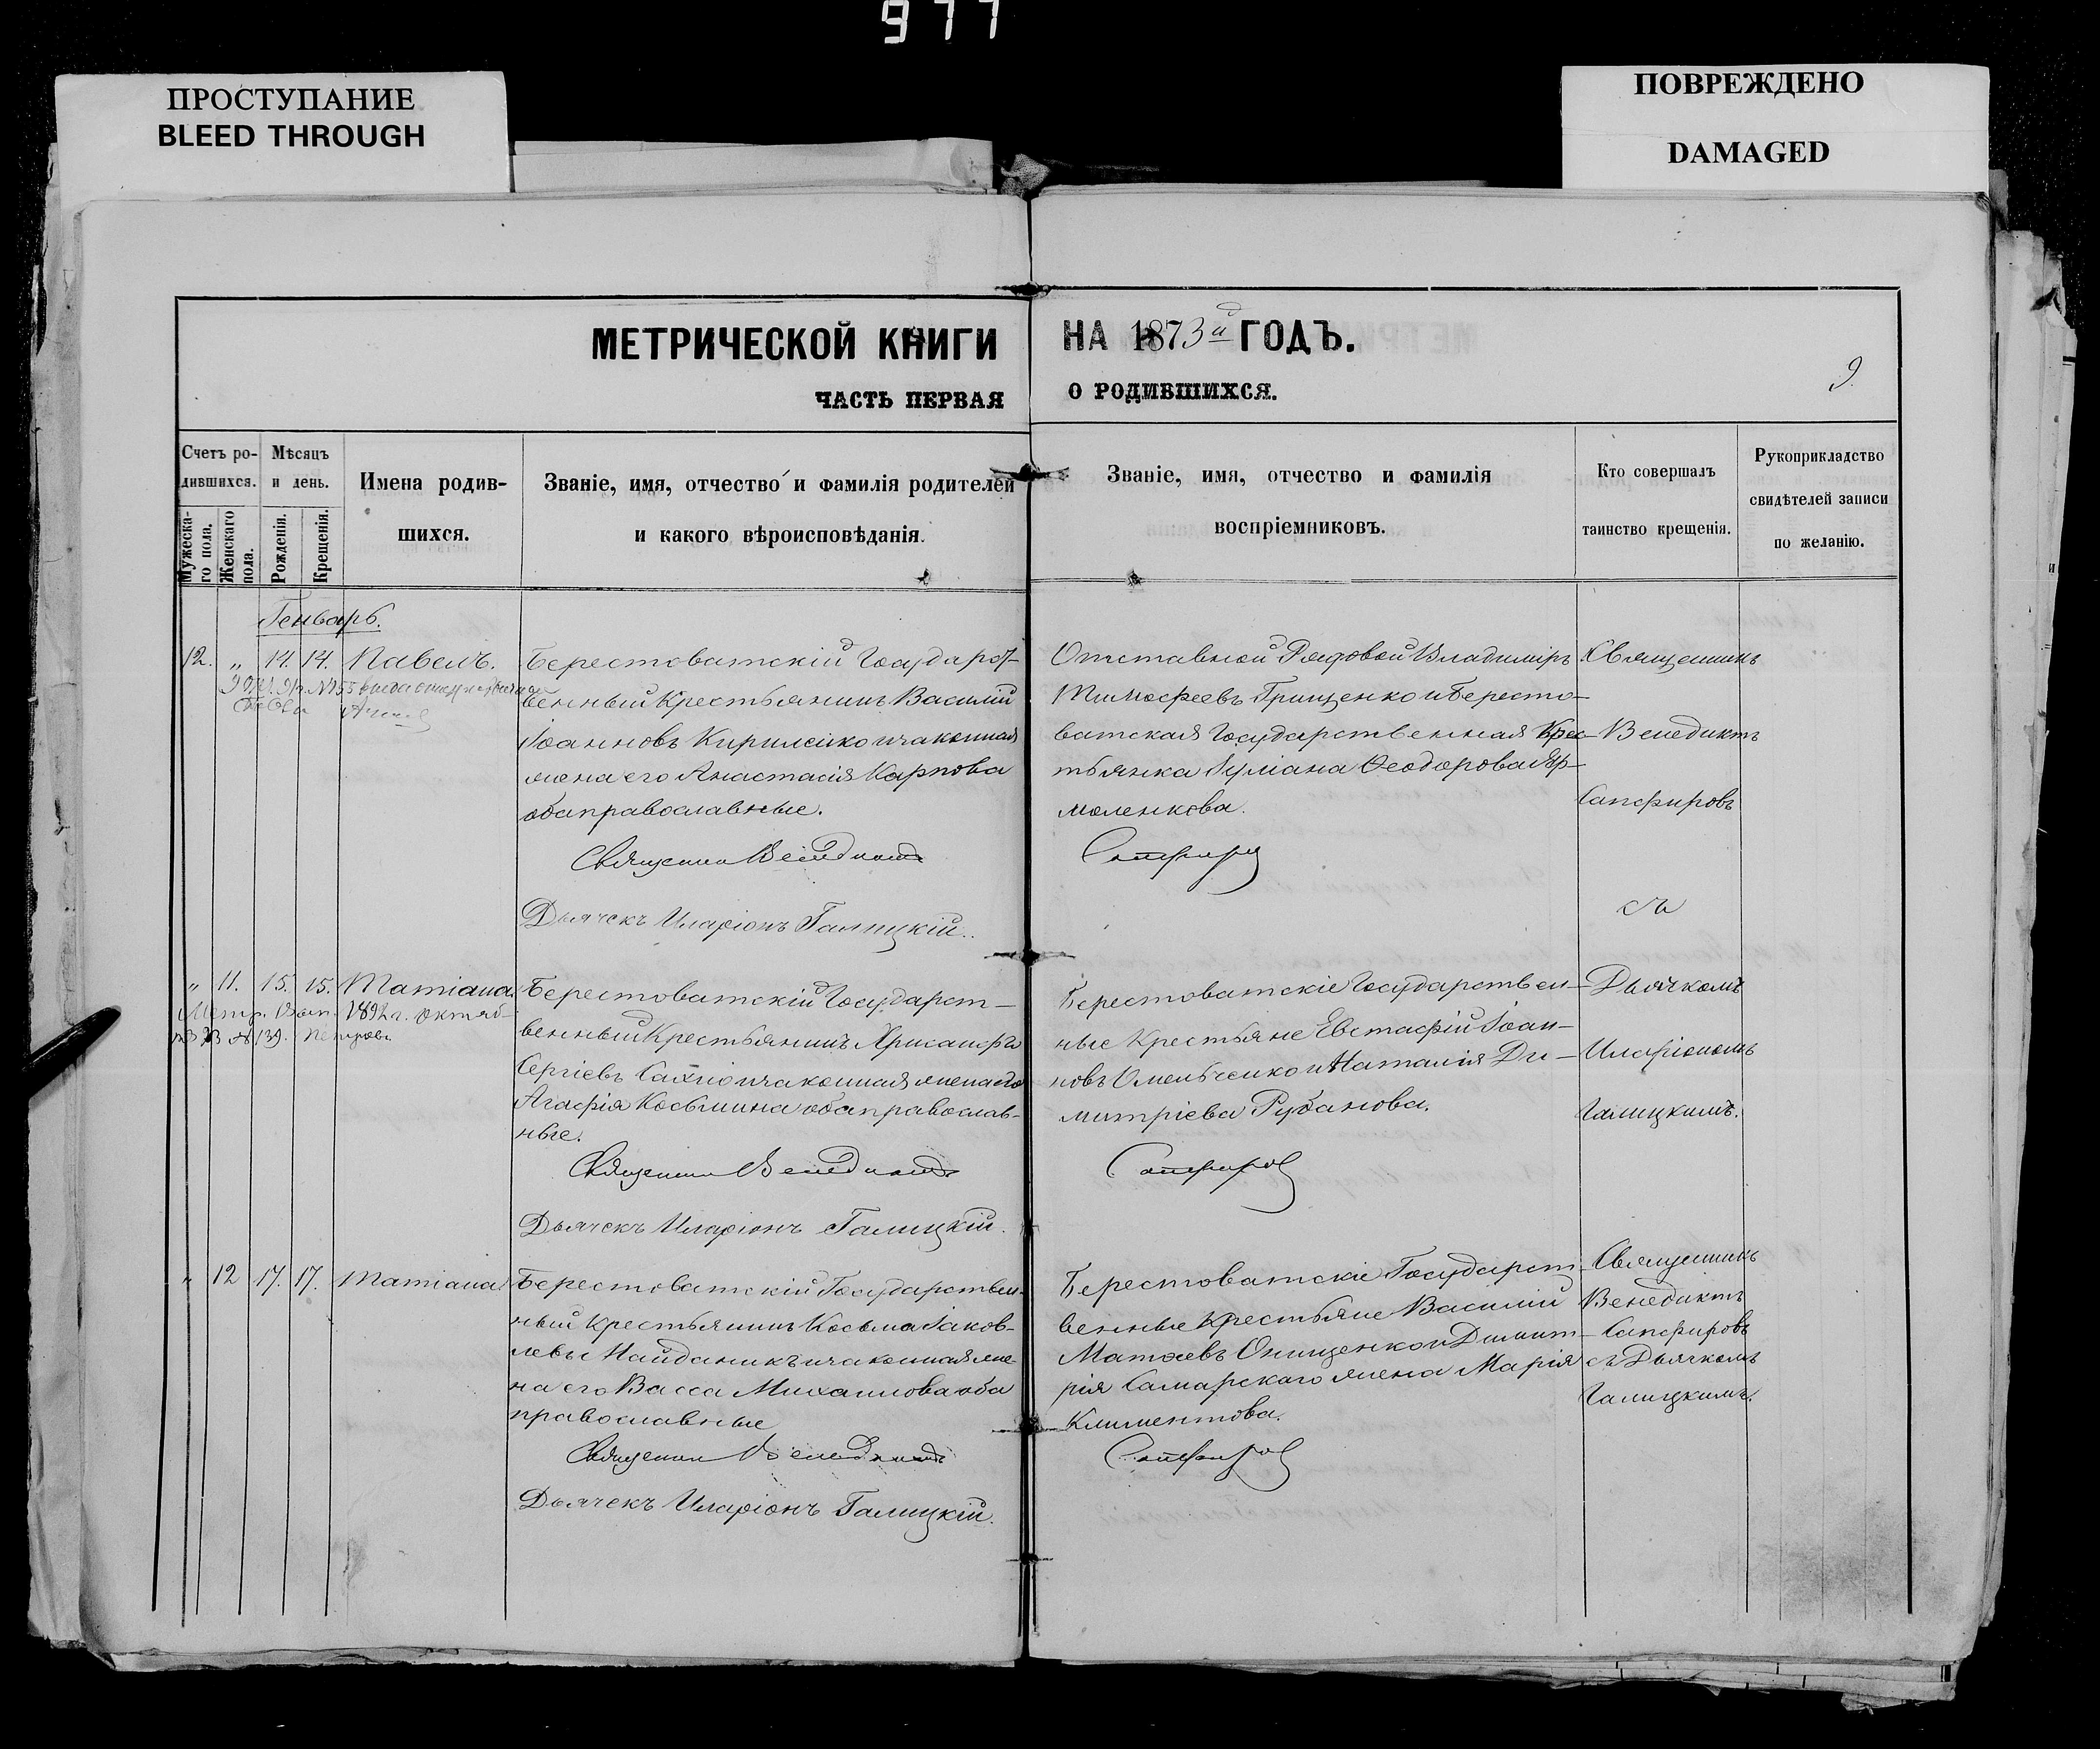 977
ПРОСТУПАНИЕ
BLEED THROUGH
ПОВРЕЖДЕНО
DAMAGED
МЕТРИЧЕСКОЙ КНИГИ НА 1873й ГОДЪ.
9.
ЧАСТЬ ПЕРВАЯ О РОДИВШИХСЯ.
Счетъ ро-
дившихся.
Мужеска-
го пола.
Женскаго
пола.
Мѣсяцъ
и день.
Рожденія.
Крещенія.
Имена родив-
шихся.
Званіе, имя, отчество и фамилія родителей
и какого вѣроисповѣданія.
Званіе, имя, отчество и фамилія
воспріемниковъ.
Кто совершалъ
таинство крещенія.
Рукоприкладство
свидѣтелей записи
по желанію.
Генварь.
12. „ 14. 14. Павелъ.
№ 55
Берестоватскій Государст-
венный Крестьянинъ Василій
Іоанновъ Кириленко и законная
жена его Анастасія Карпова
оба православные.
Священник Венедикт
Дьячекъ Иларіонъ Галицкій.
Отставной Рядовой Владиміръ
Тимофеевъ Грищенко и Бересто-
ватская Государственная Крес-
тьянка Іуліана Феодорова Яр-
моленкова.
Сапфиров
Священникъ
Венедиктъ
Сапфировъ
съ
„ 11. 15. 15. Татіана.
Метр. Вып. 1892 г. Октяб-
№ 139.
Берестоватскій Государст-
венный Крестьянинъ Хрисанфъ
Сергіевъ и законная жена его
Агафія Косьмина оба православ-
ные.
Священник Венедикт
Дьячекъ Иларіонъ Галицкій.
Берестоватскіе Государствен-
ные Крестьяне Евстафій Іоан-
новъ Омельченко и Наталія Ди-
митріева Рубанова.
Сапфиров
Дьячкомъ
Иларіономъ
Галицкимъ.
„ 12 17. 17. Татіана.
Берестоватскій Государствен-
ный Крестьянинъ Косьма Іаков-
левъ Найданикъ и законная же-
на его Васса Михаилова оба
православные
Священник Венедикт
Дьячекъ Иларіонъ Галицкій.
Берестоватскіе Государст-
венные Крестьяне Василій
Матѳевъ Онищенко и Димит-
рія Самарскаго жена Марія
Климентова.
Сапфиров
Священникъ
Венедиктъ
Сапфировъ
съ Дьячкомъ
Галицкимъ.